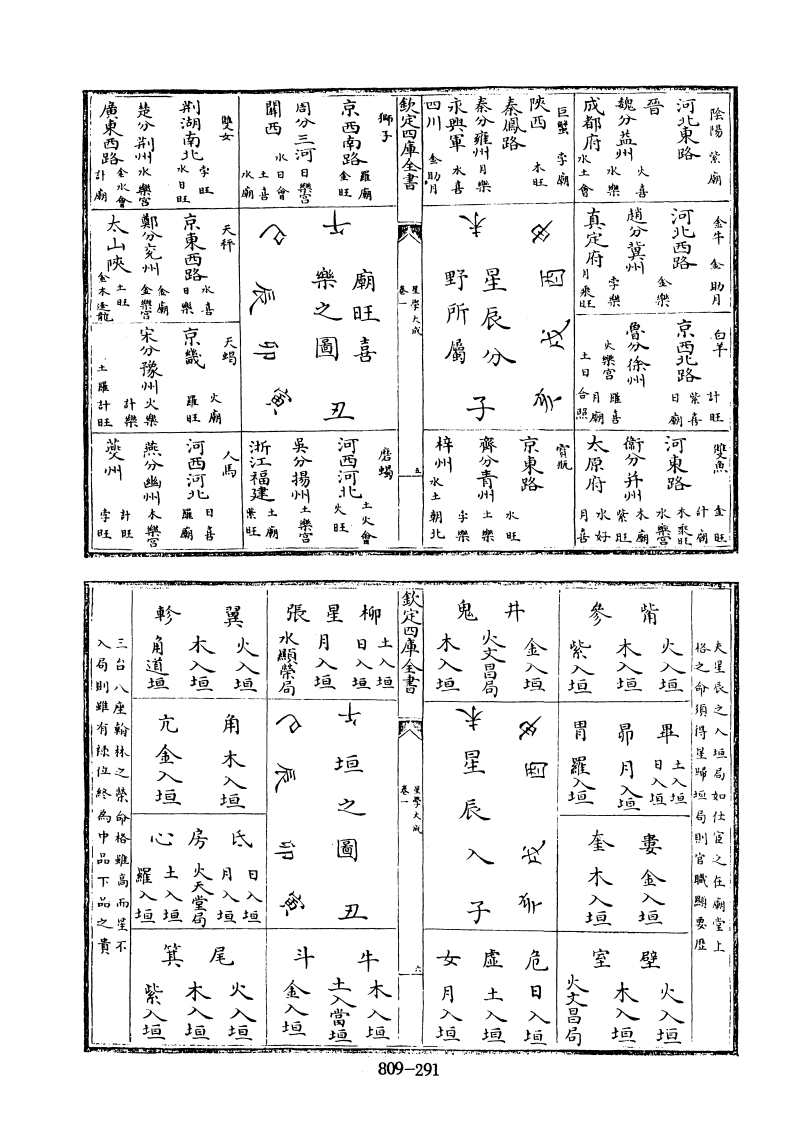 陰陽 紫廟
河北東路
晉 火喜
魏分益州 水樂
成都府 水土會
金牛 金助月
河北西路 金樂
趙分冀州 孛樂
真定府 月乘旺
白羊 計旺
京西北路 紫喜 日廟
魯分徐州 羅喜 月廟
火樂宮 土日合照
雙魚 金旺 計廟
河東路 木乘旺 水樂宮
衞分并州 木廟 紫旺
太原府 水好 月喜
巨蟹 孛廟
陝西 木旺
秦鳳路
秦分雍州 月樂
永興軍 水喜
四川 金助月
寶瓶
京東路 水旺
齊分青州 土樂 孛樂
梓州 水土朝北
未 申 酉 戌 亥 子
星辰分
野所屬
欽定四庫全書
星學大成
卷一
五
獅子
京西南路 羅廟 金旺
周分三河 日樂宮 日會
關西 水土喜 水廟
磨蝎
河西河北 土火會 火旺
吳分揚州 土樂宮
浙江福建 土廟 紫旺
午 巳 辰 卯 寅 丑
廟旺喜
樂之圖
雙女
荆湖南北 孛旺 水日旺
楚分荆州 水樂宮 金水會
廣東西路 計廟
天秤
京東西路 水喜 日樂
鄭分兖州 金廟 金樂宮
太山陝 土旺 金木逢龍
天蝎
京畿 火廟 羅旺
宋分豫州 火樂 計樂
土羅計旺
人馬
河西河北 日喜 羅廟
燕分幽州 木樂宮 計旺
㷼州 孛旺
夫星辰之入垣局如仕宦之在廟堂上
格之命須得星歸垣局則官職顯要歷
觜 火入垣 木入垣
參 紫入垣
畢 土入垣 日入垣
昴 月入垣
胃 羅入垣
婁 金入垣
奎 木入垣
壁 火入垣 木入垣
室 火文昌局
井 金入垣 火文昌局
鬼 木入垣
未 申 酉 戌 亥 子
星辰入
危 日入垣
虛 土入垣
女 月入垣
欽定四庫全書
星學大成
卷一
六
柳 土入垣 日入垣
星 月入垣
張 水顯榮局
午 巳 辰 卯 寅 丑
垣之圖
牛 木入垣 土入當垣
斗 金入垣
翼 火入垣 木入垣
軫 角道垣
角 木入垣
亢 金入垣
氐 日入垣 月入垣
房 火天堂局
心 土入垣 羅入垣
尾 火入垣 木入垣
箕 紫入垣
三台八座翰林之榮命格雖高而星不
入局則雖有祿位終為中品下品之貴
809-291